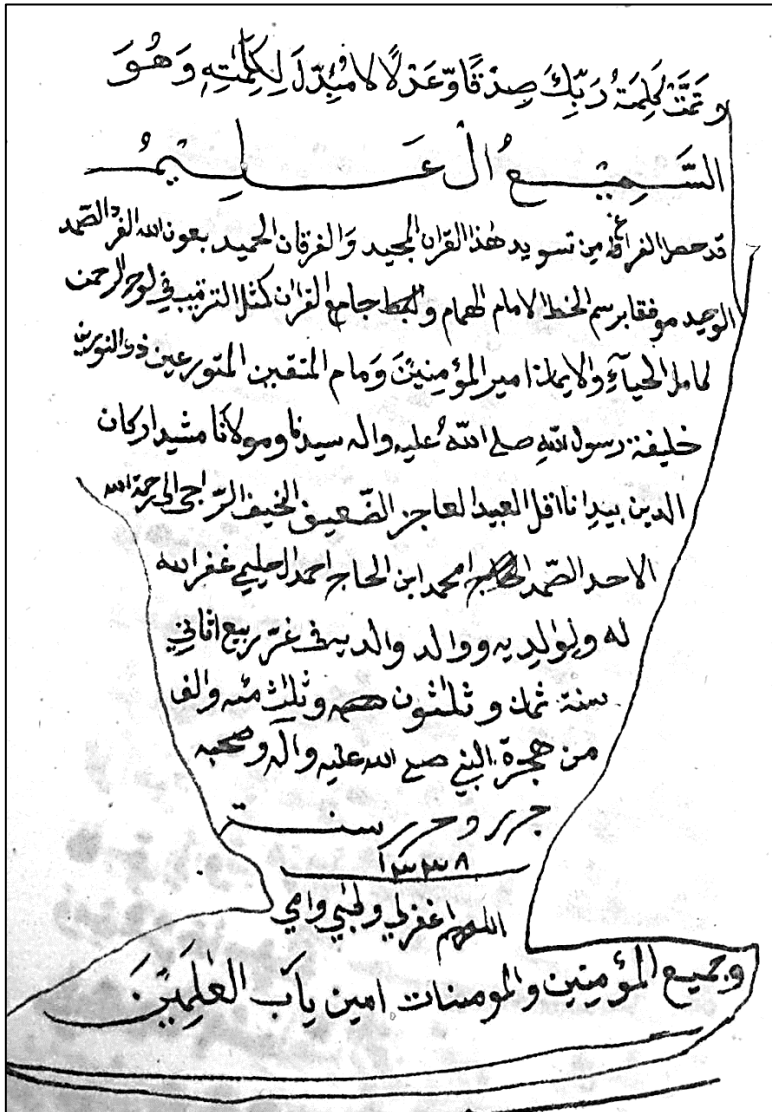 وَتَمَّتْ كَلِمَةُ رَبِّكَ صِدْقًا وَّعَدْلًا لَا مُبَدِّلَ لِكَلِمٰتِهٖ وَهُوَ
السَّمِيْعُ الْعَلِيْمُ
قد حصل الفراغ من تسويد هٰذا القران المجيد وَالفرقان الحميد بعون الله الفرد الصّمد
الوحيد موفقا برسم الخط الامام الهمام جامع القران كمثل الترتيب في لوح الرحمن
كامل الحيآءِ والايمان امير المؤمِنِيْنَ وَمام المتقين المتورعين ذي النورين
خليفة رسول اللهِ صلے اللهُ عليه واله سيدنا ومولانا مشيد اركان
الدين بيد انا اقل العبيد العاجز الضّعيف الخيف الرّاجي الى رحمة الله
الاحد الصّمد محمد ابن الحاج احمد غفر الله
له ولوالديه ووالد والديه فى غرّ ربيع اثاني
سنة ثمان وثلٰثون وثلٰث مئه والف
من هجرة النبي صلے الله عليه واله وصحبه
حرر سنة
١٣٣٨
اللهم اغفرلي ولابي وامي
وجميع المؤمِنِين والمومنات امين ياَب العٰلمِيْنَ